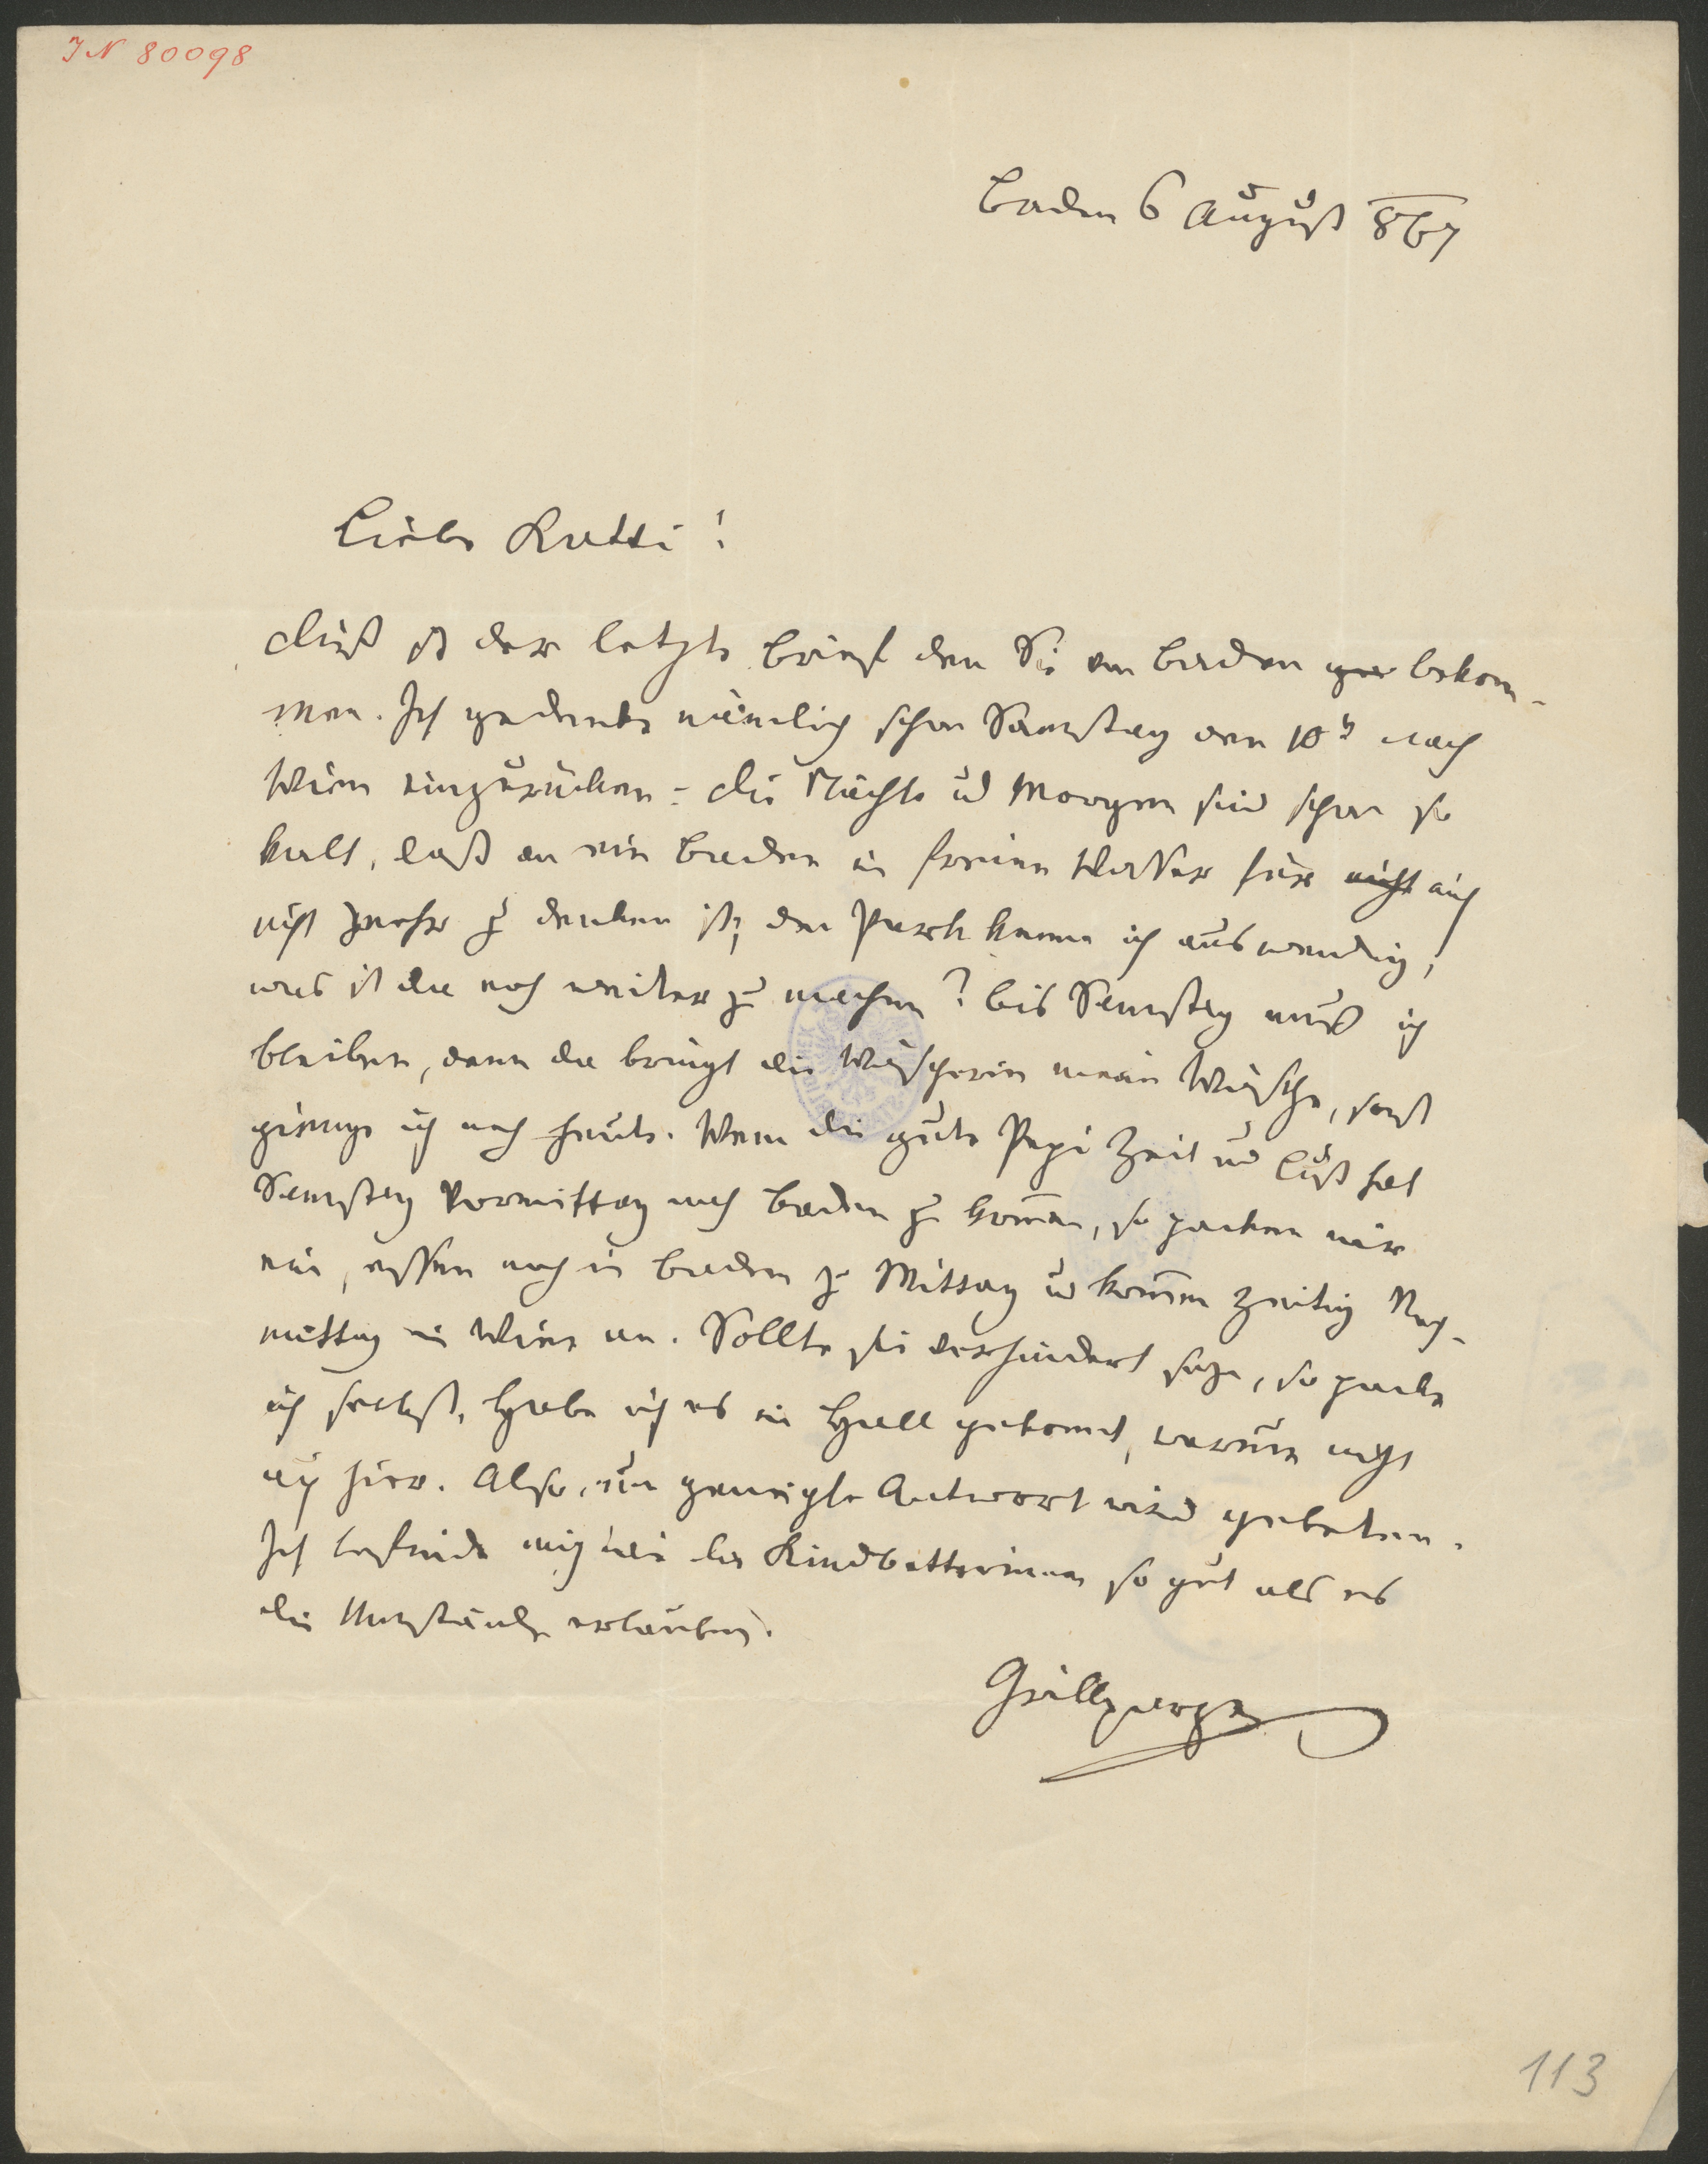 IN 80098
Baden 6 August 867
Liebe Katti!
Dieß ist der letzte Brief den Sie von Baden bekom-
men. Ich gedenke nämlich schon Samstag den 10t nach
Wien einzurücken. Die Nächte und Morgen sind schon so
kalt, daß an ein Baden in freien Wasser für nicht mich
nicht mehr zu denken ist, den Park kenne ich auswendig,
was ist da noch weiter zu machen? Bis Samstag muß ich
bleiben, denn da bringt die Wäscherin meine Wäsche, sonst
gienge ich noch heute. Wenn die gute Pepi Zeit und Lust hat
Samstag Vormittag nach Baden zu kom̄en, so packen wir
ein, essen noch in Baden zu Mittag u kom̄en zeitig Nach-
mittag in Wien an. Sollte sie verhindert seyn, so packe
ich selbst. Habe ich es in Hall gekonnt, warum nicht
auch hier. Also, um geneigte Antwort wird gebeten.
Ich befinde mich wie die Kindbetterinnen so gut als es
die Umstände erlauben.
Grillparzer
113